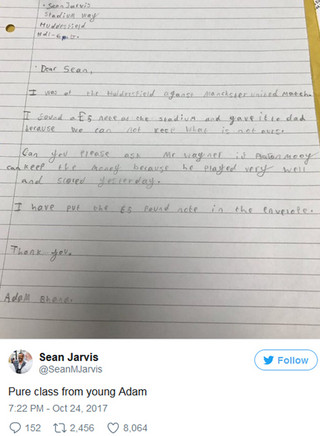 Sean Jarvis
Stadium Way
Huddersfield
Dear Sean,
I was at the Huddersfield against Manchester united
I found a £5 note at the stadium and gave it to dad
because we can not keep what is not ours.
Can you please ask Mr wagner if
can keep the money because he played very well
and scored yesterday.
I have put the £5 pound note in the envelope.
Thank you.
Adam
Sean Jarvis
@SeanMJarvis
Follow
Pure class from young Adam
7:22 PM - Oct 24, 2017
152 2,456 8,064